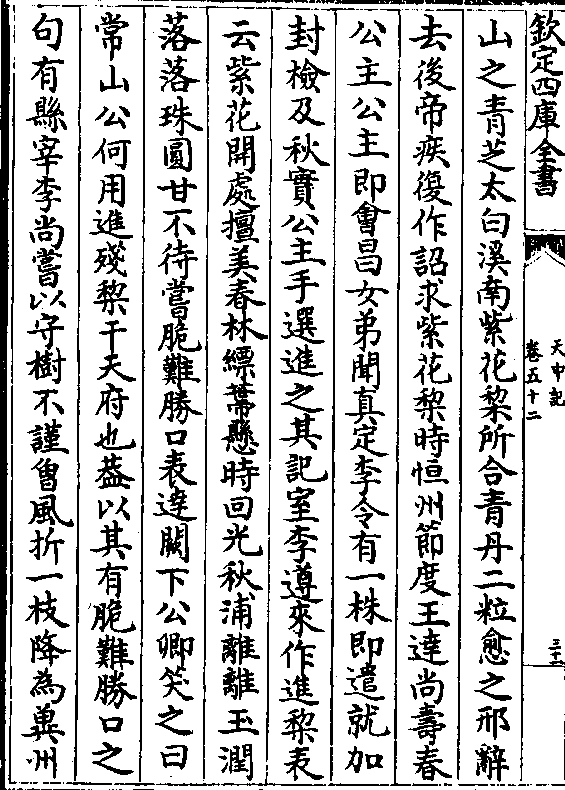 欽定四庫全書
天中記
卷五十二
三十一
山之青芝太白溪南紫花棃所合青丹二粒愈之邢辭
去後帝疾復作詔求紫花棃時恒州節度王達尚壽春
公主公主即會昌女弟聞真定李令有一株即遣就加
封檢及秋實公主手選進之其記室李遵來作進棃表
云紫花開處擅美春林縹葉懸時回光秋浦離離玉潤
落落珠圓甘不待嘗脆難勝口表達闕下公卿笑之曰
常山公何用進殘棃干天府也葢以其有脆難勝口之
句有縣宰李尚嘗以守樹不謹曾風折一枝降為兾州